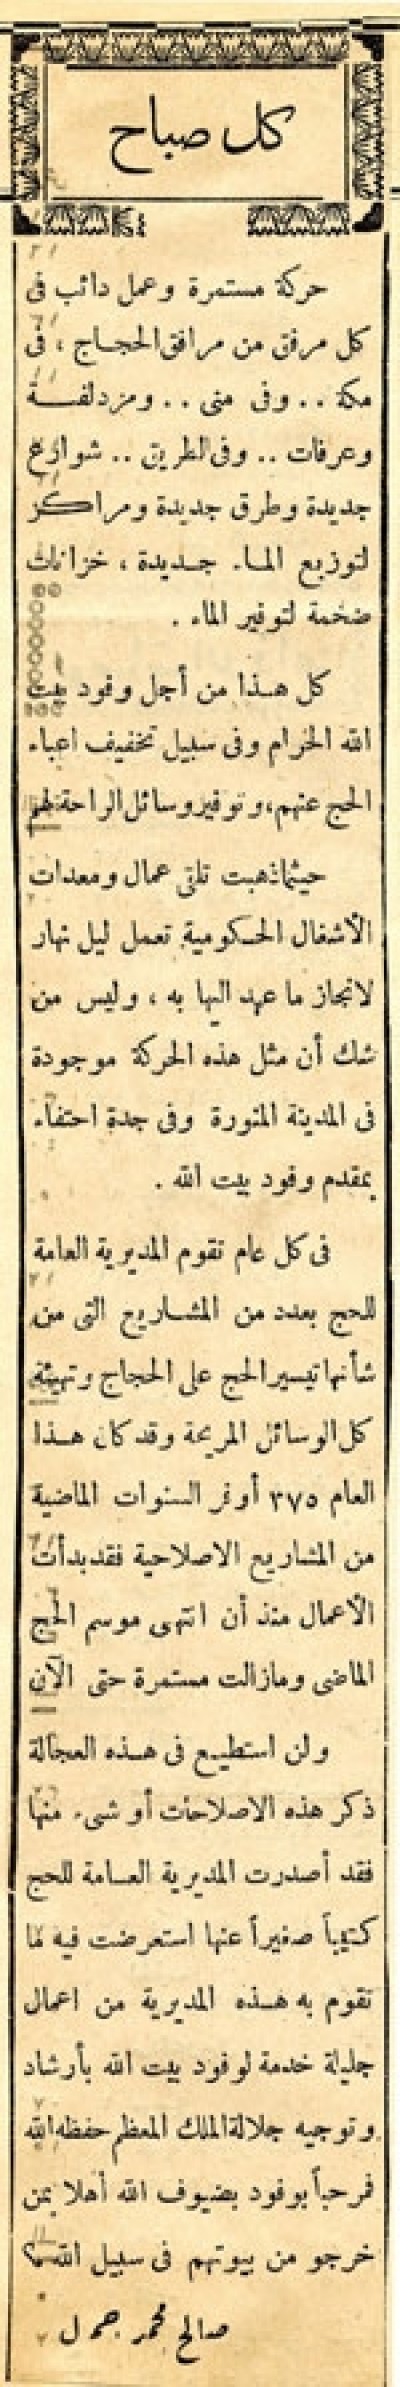 كل صباح
حركة مستمرة وعمل دائب فى
كل مرفق من مرافق الحجاج ، فى
مكة .. وفى منى .. ومزدلفة
وعرفات .. وفى الطريق .. شوارع
جديدة وطرق جديدة ومراكز
لتوزيع الماء جديدة ، خزانات
ضخمة لتوفير الماء .
كل هذا من أجل وفود بيت
الله الحرام وفى سبيل تخفيف اعباء
الحج عنهم، وتوفير وسائل الراحة لهم
حيثما ذهبت تلقى عمال ومعدات
الأشغال الحكومية تعمل ليل نهار
لانجاز ما عهد اليها به ، وليس من
شك أن مثل هذه الحركة موجودة
فى المدينة المنورة وفى جدة احتفاء
بمقدم وفود بيت الله .
فى كل عام تقوم المديرية العامة
للحج بعدد من المشاريع التى من
شأنها تيسير الحج على الحجاج وتهيئة
كل الوسائل المريحة وقد كان هذا
العام ٣٧٥ أوفر السنوات الماضية
من المشاريع الاصلاحية فقد بدأت
الأعمال منذ أن انتهى موسم الحج
الماضى ومازالت مستمرة حتى الآن
ولن استطيع فى هذه العجالة
ذكر هذه الاصلاحات أو شىء منها
فقد أصدرت المديرية العامة للحج
كتيباً صغيراً عنها استعرضت فيه ما
تقوم به هذه المديرية من اعمال
جليلة خدمة لوفود بيت الله بأرشاد
وتوجيه جلالة الملك المعظم حفظه الله
فمرحباً بوفود بضيوف الله أهلا بمن
خرجو من بيوتهم فى سبيل الله ؟
صالح محمد جمال